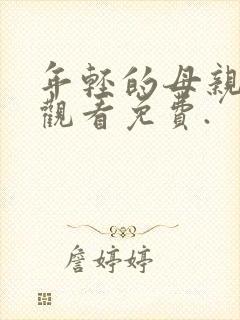 年轻的母親
觀看免費.
詹婷婷